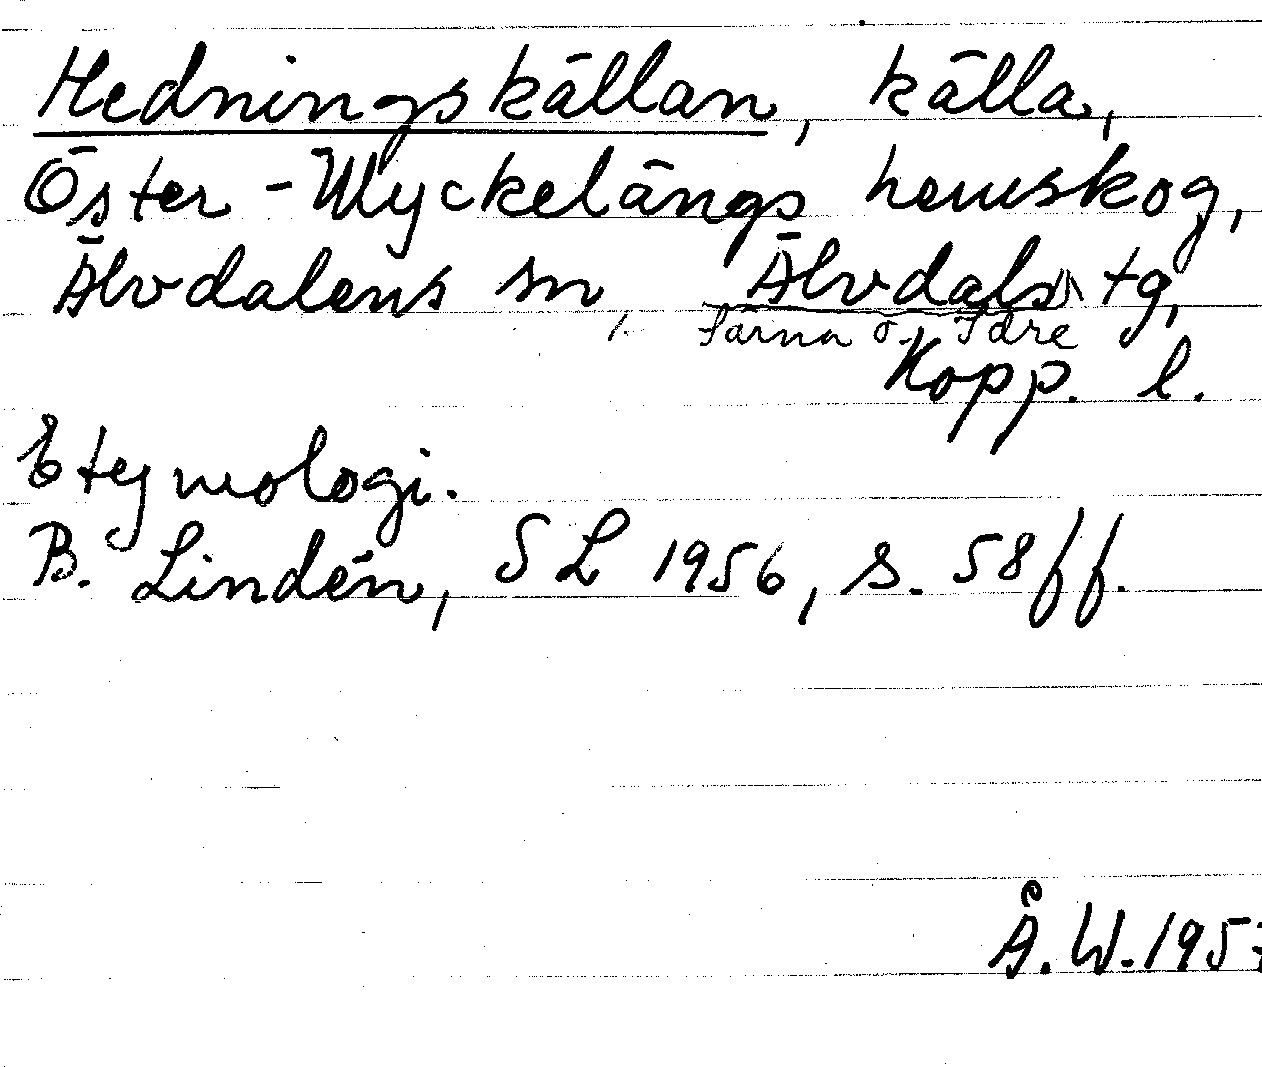 Hedningskällan, källa,
Öster-Myckelängs hemskog,
Älvdalens sn, Älvdals tg,
Särna o. Idre
Kopp. l.
Etymologi.
B. Lindén, SL 1956, s. 58ff.
Å.W. 1957